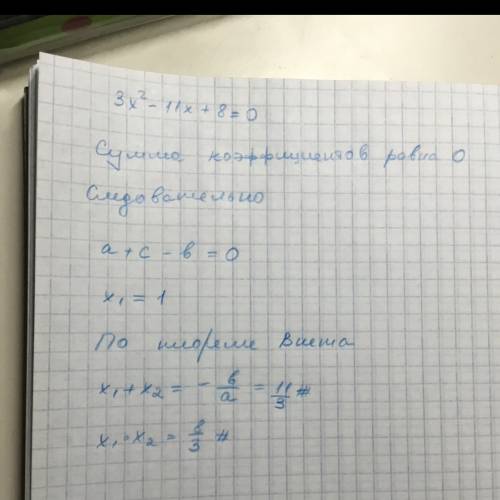 3x² - 11x + 8 = 0
Сумма коэффициентов равна 0
Следовательно
a + c - в = 0
x₁ = 1
По теореме Виета
x₁ + x₂ = - в/a = 11/3 #
x₁ · x₂ = 8/3 #